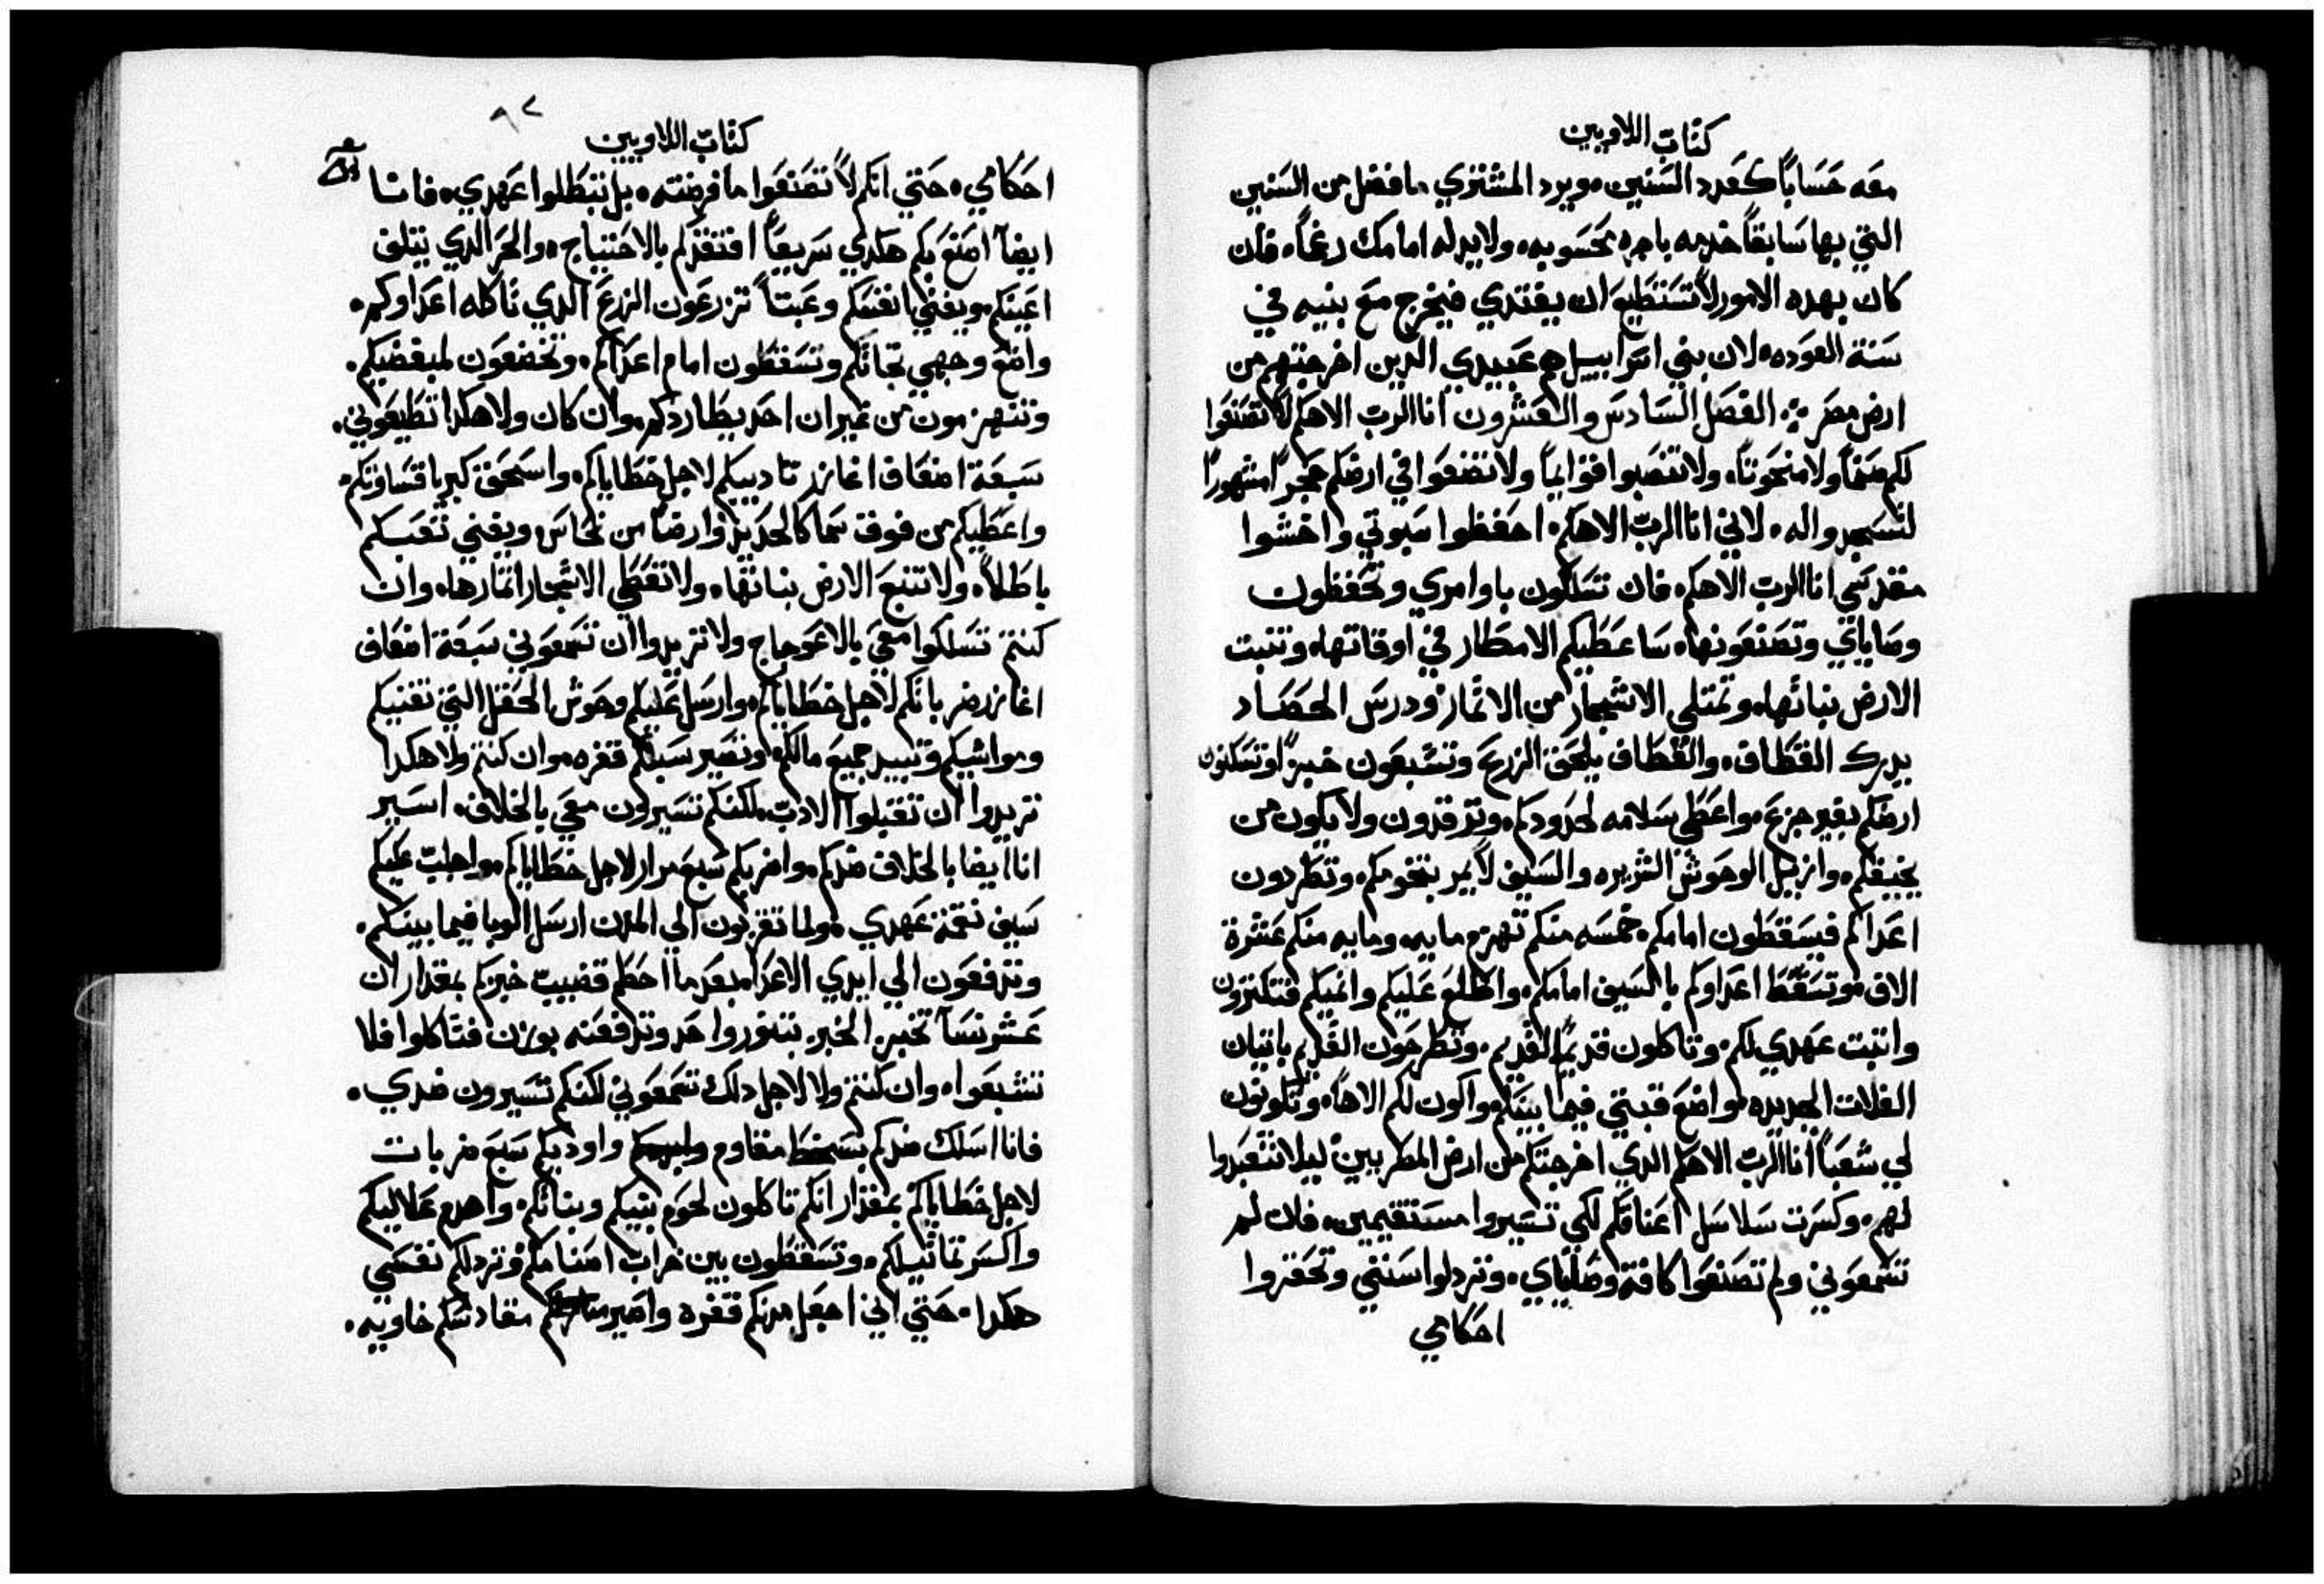 كتاب اللاويين
معه حسابا كعدد السنين. ويرد المشتري ما فضل من السنين
التي بها سابقا خدمه باجره محسوبه. ولا يدله امامك رغما. فان
كان بهده الامور لا تستطيع ان يفتدي فيخرج مع بنيه في
سنة العوده. لان بني اسراييل هم عبيدي الدين اخرجتهم من
ارض مصر ∴ الفصل السادس والعشرون انا الرب الاهكم لا تصنعوا
لكم صنما ولا منحوتا. ولا تنصبوا قوايما ولا تضعوا في ارضكم حجرا مشهورا
لتسجدوا له. لاني انا الرب الاهكم. احفظوا سبوتي واخشوا
مقدسي انا الرب الاهكم. فان تسلكون باوامري وتحفظون
وصاياي وتصنعونها. ساعطيكم الامطار في اوقاتها. وتنبت
الارض نباتها. وتمتلي الاشجار من الاثمار. ودرس الحصاد
يدرك القطاف. والقطاف يلحق الزرع وتشبعون خبزا. وتسكنون
ارضكم بغير جزع. واعطي سلامه لحدودكم. وترقدون ولا يكون من
يخيفكم. وازيل الوحوش الشريره والسيف لا يمر بتخومكم. وتطردون
اعداكم فيسقطون امامكم. خمسه منكم تهزم مايه. ومايه منكم عشرة
الاف. وتسقط اعداوكم بالسيف امامكم. واطلع عليكم وانميكم فتكترون
واتبت عهدي لكم. وتاكلون قديم القديم. وتطرحون القديم باتيان
الغلات الجديده. واضع قبتي فيما بينكم. واكون لكم الاها. وتكونون
لي شعبا. انا الرب الاهكم الدي اخرجتكم من ارض المطريين ليلا تتعبدوا
لهم. وكسرت سلاسل اعناقكم لكي تسيروا مستقيمين. فان لم
تسمعوني ولم تصنعوا كافة وصاياي. وتردلوا سنني وتحقروا
احكامي
٩٢
كتاب اللاويين
احكامي. حتي انكم لا تصنعوا ما فرضته. بل تبطلوا عهدي. فانا
ايضا اصنع بكم هكدي سريعا افتقدكم بالاحتياج. والحر الدي يتلف
اعينكم. ويفني انفسكم وعبتا تزرعون الزرع الدي تاكله اعداوكم.
واضع وجهي تجاتكم وتسقطون امام اعداكم. وتخضعون لمبغضيكم.
وتنهزمون من غير ان احد يطاردكم. وان كان ولا هكدا تطيعوني.
سبعة اضعاف اغازد تاديبكم لاجل خطاياكم. واسحق كبريا قساوتكم.
واعطيكم من فوق سما كالحديد وارضا من نحاس ويفني تعبكم
باطلا. ولا تنبع الارض نباتها. ولا تعطي الاشجار اتمارها. وان
كنتم تسلكوا معي بالاعوجاج ولا تريدوا ان تسمعوني سبعة اضعاف
اغازد ضرباتكم لاجل خطاياكم. وارسل عليكم وحوش الحقل التي تفنيكم
ومواشيكم وتبيد جميع مالكم. وتصير سبلكم قفره. وان كنتم ولا هكدا
تريدوا ان تقبلوا الادب. لكنكم تسيرون معي بالخلاف. اسير
انا ايضا بالخلاف ضدكم. واضربكم سبع مرار لاجل خطاياكم. واجلب عليكم
سيف نقمة عهدي. ولما تقربون الي المدن ارسل الوبا فيما بينكم.
وتدفعون الي ايدي الاعدا. بعد ما احطم قضيب خبزكم بمقدار ان
عشر نسا تخبز الخبز بتنور واحد وتدفعنه بوزن فتاكلوا فلا
تشبعوا. وان كنتم ولا لاجل دلك تسمعوني لكنكم تسيرون ضدي.
فانا اسلك ضدكم بسخط مقاوم واودبكم سبع ضربات
لاجل خطاياكم بمقدار انكم تاكلون لحوم بنيكم وبناتكم. واهدم علاليكم
واكسر تماتيلكم. وتسقطون بين خراب اصنامكم. وتردلكم نفسي
هكدا. حتي اني اجعل مدنكم قفره واصير مقادسكم خاويه.